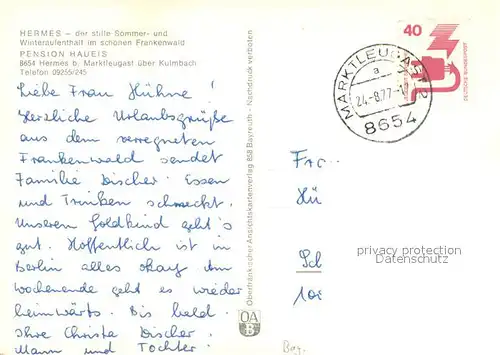 HERMES – der stille Sommer- und
Winteraufenthalt im schönen Frankenwald
PENSION HAUEIS
8654 Hermes b. Marktleugast über Kulmbach
Telefon 09255/245
Liebe Frau Hühne!
Herzliche Urlaubsgrüße
aus dem verregneten
Frankenwald sendet
Familie Discher. Essen
und Trinken schmeckt.
Unserem Goldkind geht's
gut. Hoffentlich ist in
Berlin alles okay. Am
Wochenende geht es wieder
heimwärts. Bis bald.
Ihre Christa Discher.
Mann und Tochter.
Oberfränkischer Ansichtskartenverlag 858 Bayreuth - Nachdruck verboten
OA
B
MARKTLEUGAST 2
a
24.-8.77-17
8654
40
DEUTSCHE BUNDESPOST
Frau
Hü
Sch
100
privacy protection
Datenschutz
Bay.